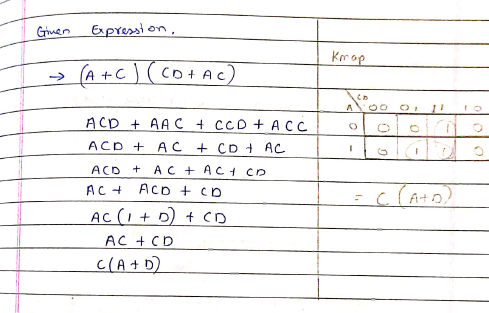 Given Expression.
→ (A + C) (CD + AC)
ACD + AAC + CCD + ACC
ACD + AC + CD + AC
ACD + AC + AC + CD
AC + ACD + CD
AC (1 + D) + CD
AC + CD
C(A + D)
Kmap
A \ CD 00 01 11 10
0 0 0 1 0
1 0 1 1 0
= C (A+D)